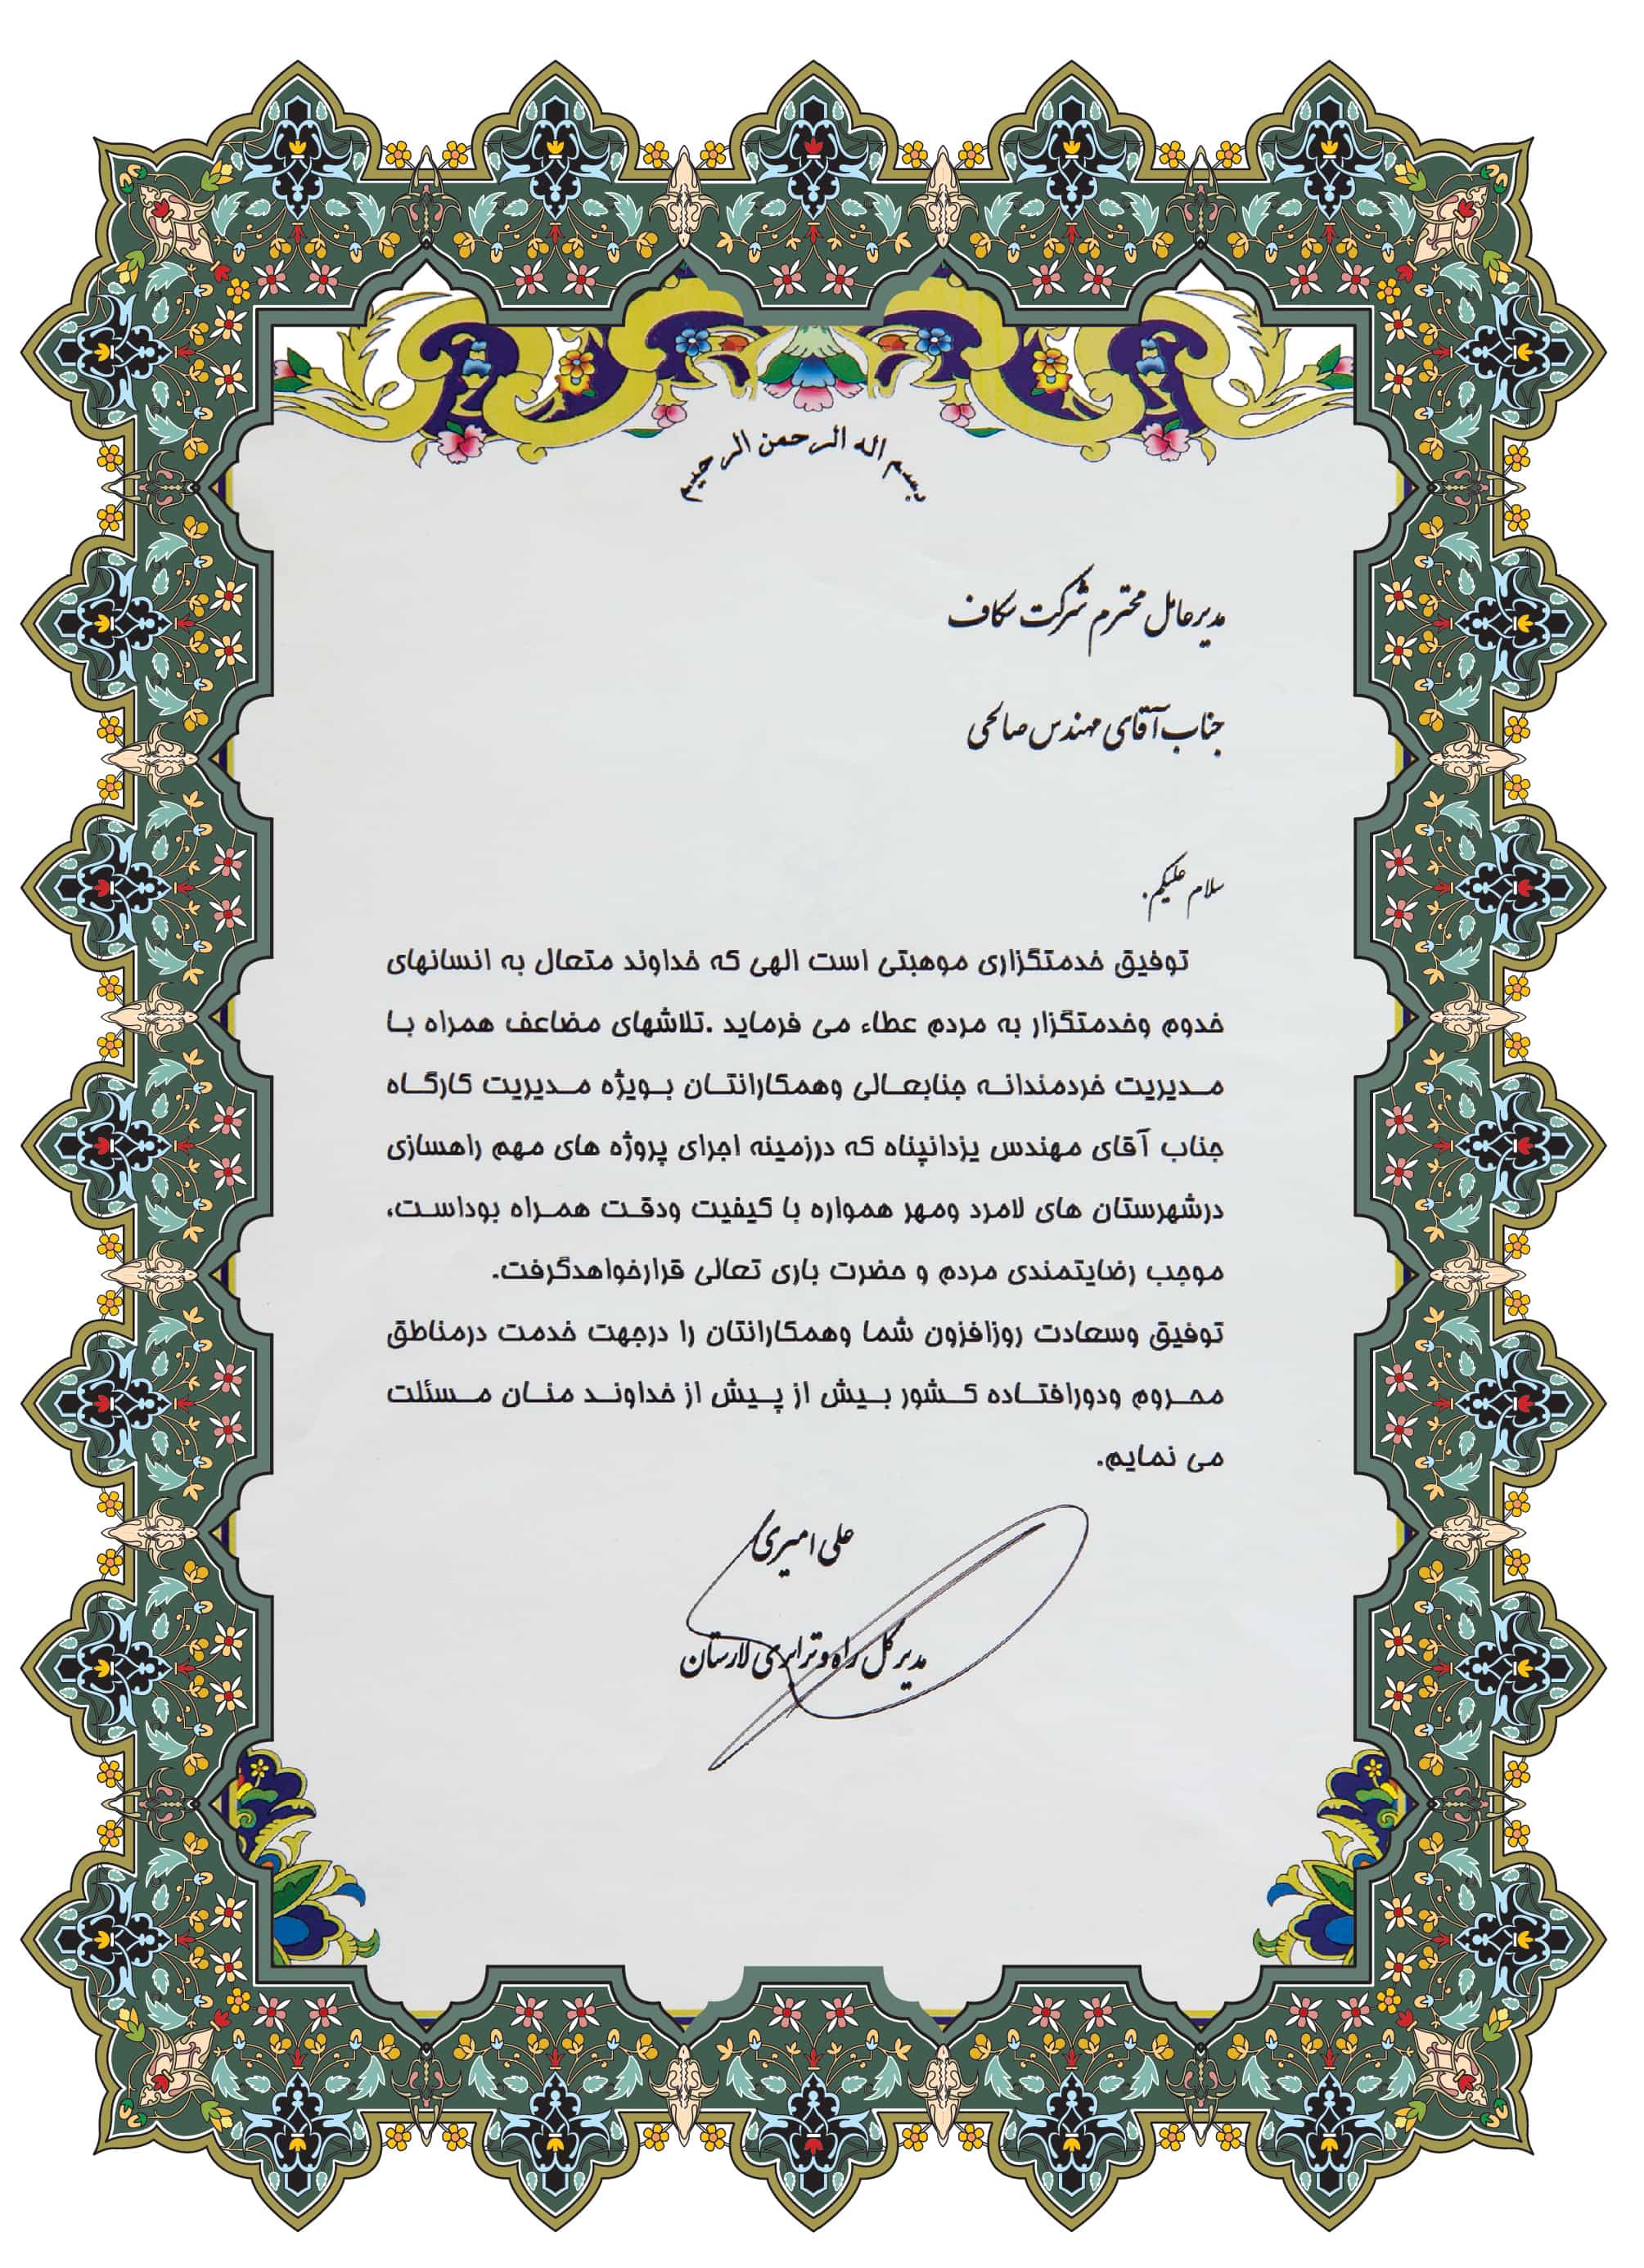 بسم اله الرحمن الرحیم
مدیرعامل محترم شرکت سکاف
جناب آقای مهندس صالحی
سلام علیکم.
توفیق خدمتگزاری موهبتی است الهی که خداوند متعال به انسانهای
خدوم وخدمتگزار به مردم عطاء می فرماید .تلاشهای مضاعف همراه با
مدیریت خردمندانه جنابعالی وهمکارانتان بویژه مدیریت کارگاه
جناب آقای مهندس یزدانپناه که درزمینه اجرای پروژه های مهم راهسازی
درشهرستان های لامرد ومهر همواره با کیفیت ودقت همراه بوداست،
موجب رضایتمندی مردم و حضرت باری تعالی قرارخواهدگرفت.
توفیق وسعادت روزافزون شما وهمکارانتان را درجهت خدمت درمناطق
محروم ودورافتاده کشور بیش از پیش از خداوند منان مسئلت
می نمایم.
علی امیری
مدیرکل راه وترابری لارستان